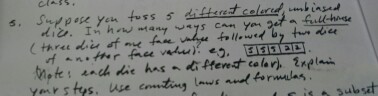 class.
5. Suppose you toss 5 different colored, unbiased
dice. In how many ways can you get a full-house
(three dice of one face value followed by two dice
of another face value). eg, 5 5 5 2 2
(Note: each die has a different color). Explain
your steps. Use counting laws and formulas.
is a subset